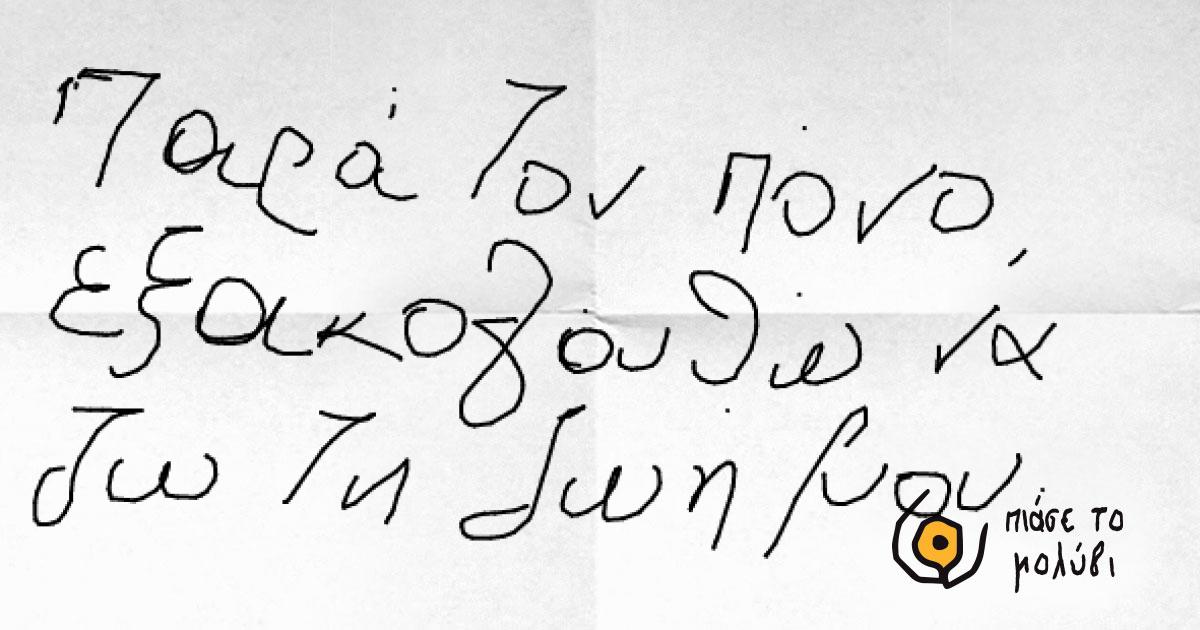 Παρά τον πόνο,
εξακολουθώ να
ζω τη ζωή μου.
πιάσε το
μολύβι